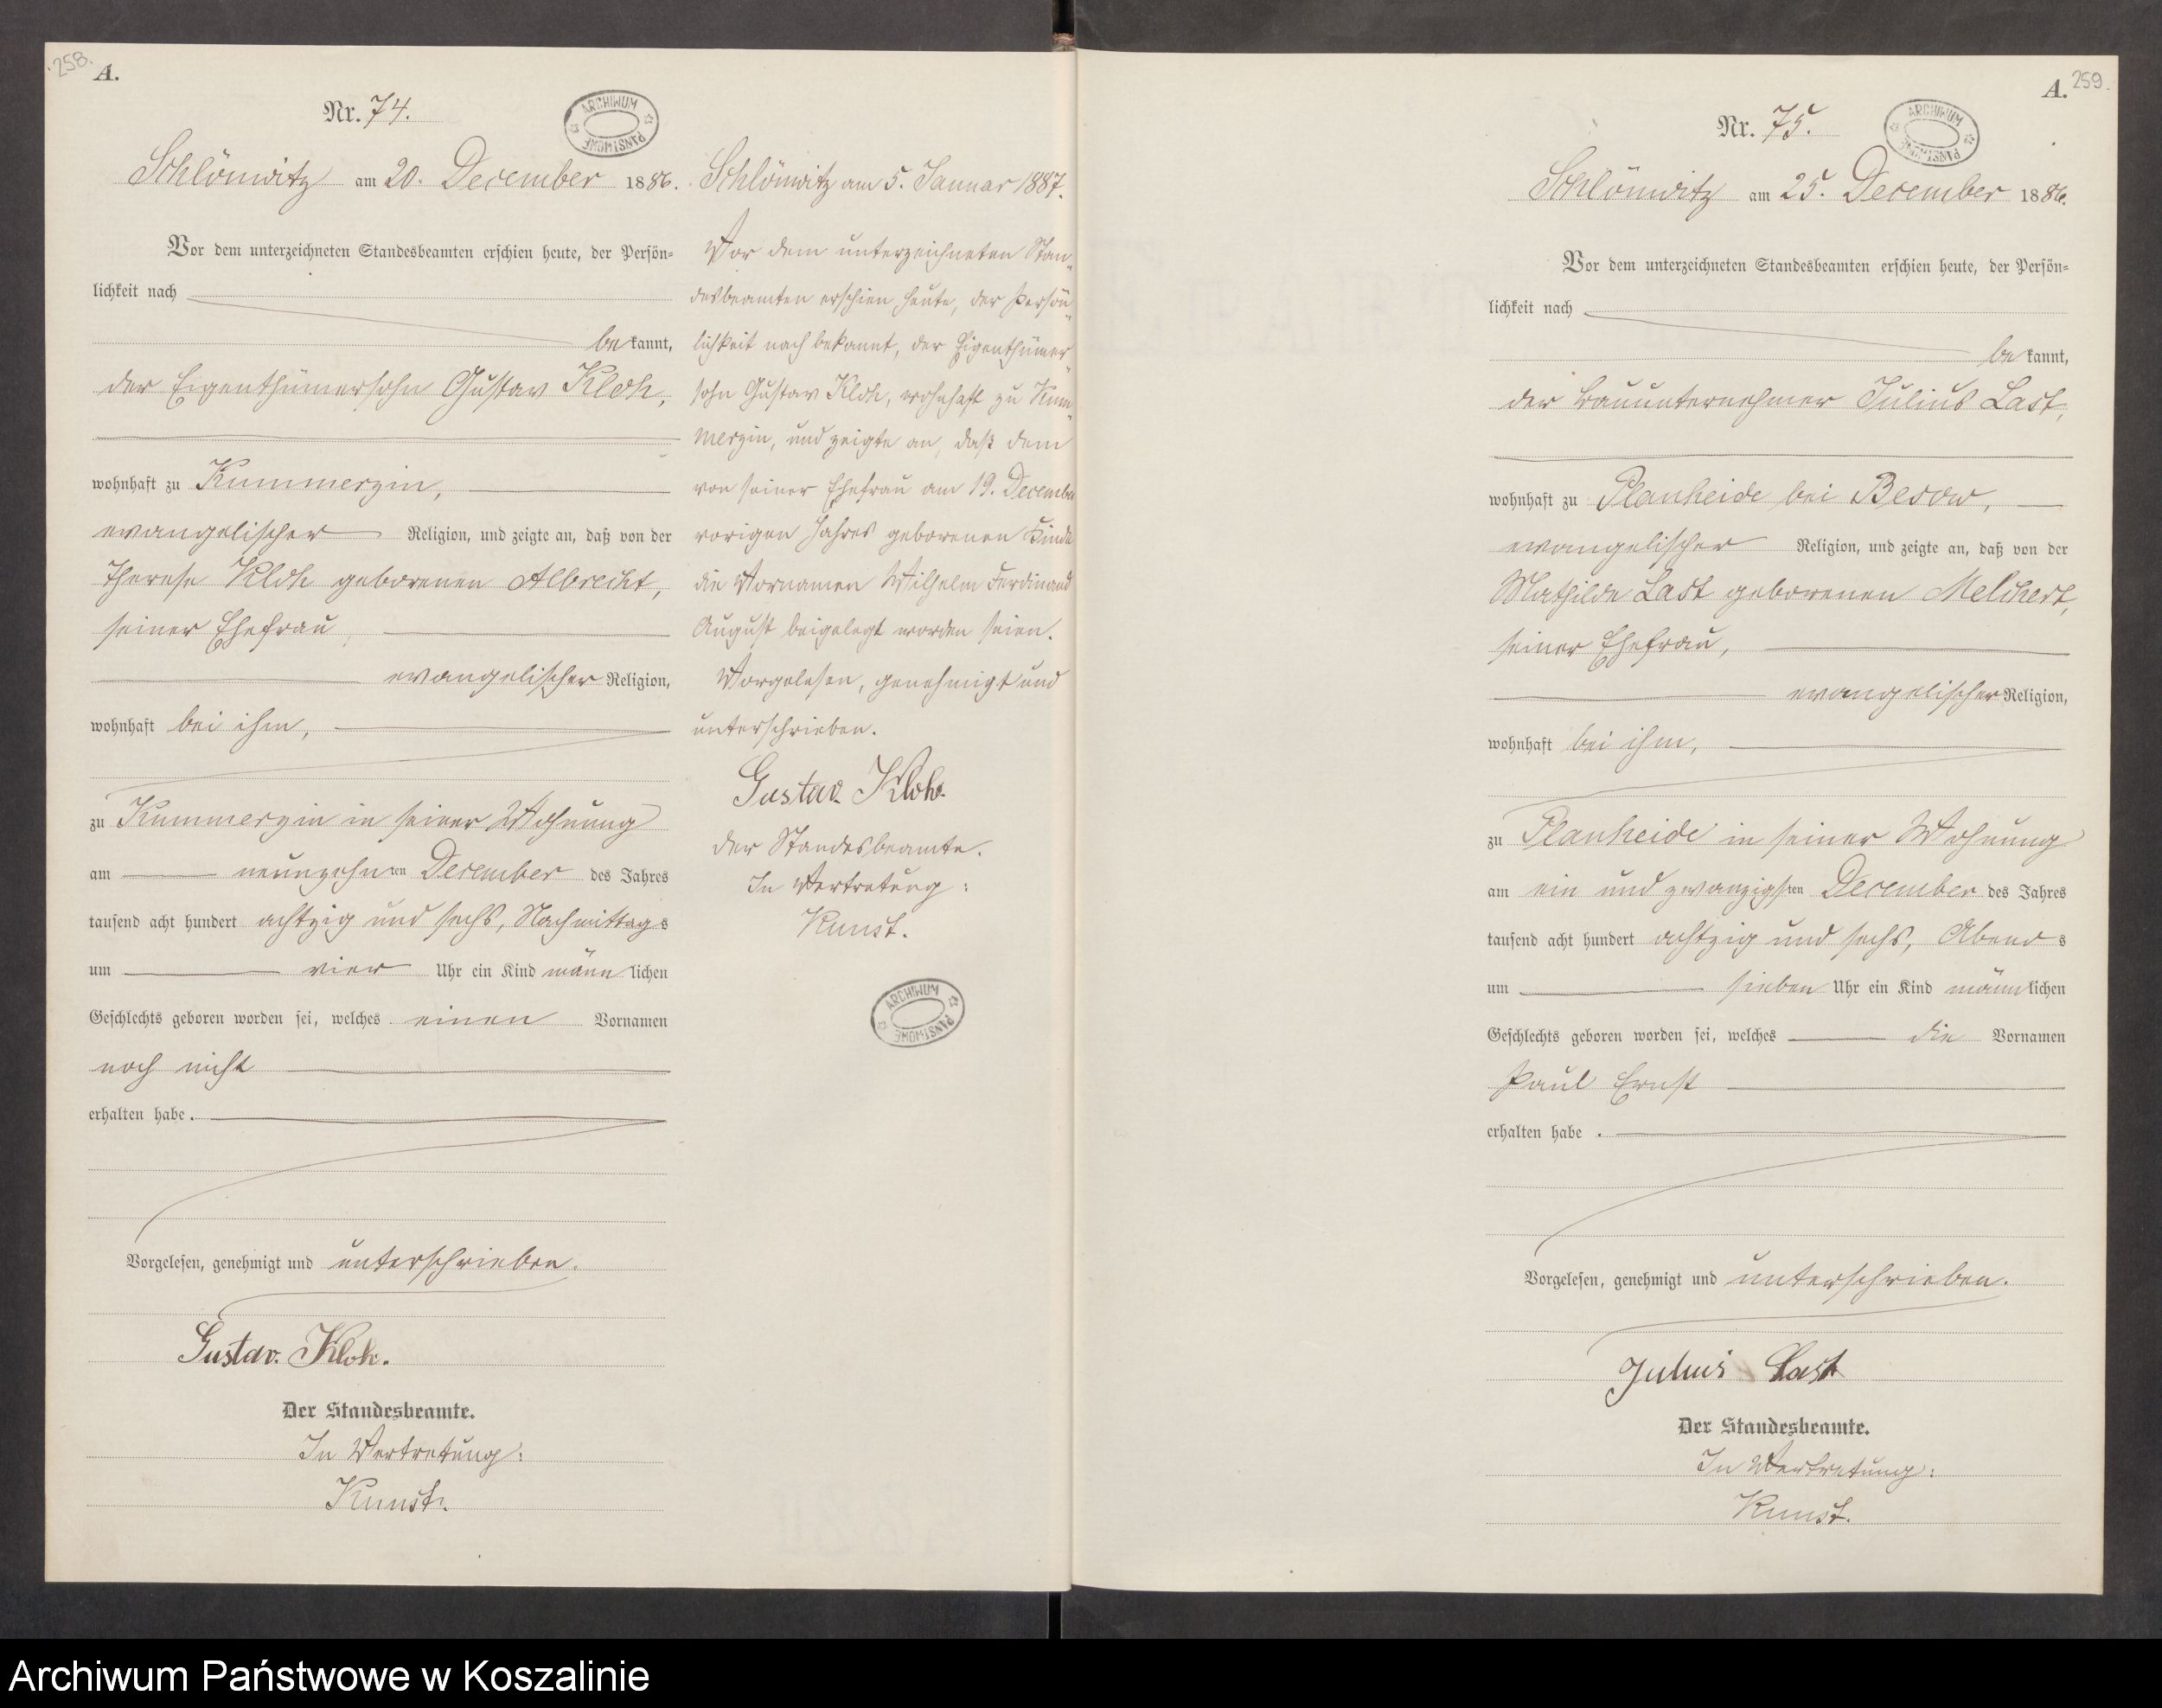 258.
A.
Nr. 74.
ARCHIWUM PAŃSTWOWE
Schlönwitz am 20. December 1886.
Vor dem unterzeichneten Standesbeamten erschien heute, der Persön-
lichkeit nach
bekannt,
der Eigenthümersohn Gustav Kloh,
wohnhaft zu Kummerzin,
evangelischer Religion, und zeigte an, daß von der
Therese Kloh geborenen Albrecht,
seiner Ehefrau,
evangelischer Religion,
wohnhaft bei ihm,
zu Kummerzin in seiner Wohnung
am neunzehnten December des Jahres
tausend acht hundert achtzig und sechs, Nachmittags
um vier Uhr ein Kind männlichen
Geschlechts geboren worden sei, welches einen Vornamen
noch nicht
erhalten habe.
Vorgelesen, genehmigt und unterschrieben.
Gustav. Kloh.
Der Standesbeamte.
In Vertretung:
Kunst.
Schlönwitz am 5. Januar 1887.
Vor dem unterzeichneten Stan-
desbeamten erschien heute, der Persön-
lichkeit nach bekannt, der Eigenthümer-
sohn Gustav Kloh, wohnhaft zu Kum-
merzin, und zeigte an, daß dem
von seiner Ehefrau am 19. December
vorigen Jahres geborenen Kinde
die Vornamen Wilhelm Ferdinand
August beigelegt worden seien.
Vorgelesen, genehmigt und
unterschrieben.
Gustav. Kloh.
Der Standesbeamte.
In Vertretung:
Kunst.
ARCHIWUM PAŃSTWOWE
A.
259.
Nr. 75.
ARCHIWUM PAŃSTWOWE
Schlönwitz am 25. December 1886.
Vor dem unterzeichneten Standesbeamten erschien heute, der Persön-
lichkeit nach
bekannt,
der Bauunternehmer Julius Last,
wohnhaft zu Planheide bei Besow,
evangelischer Religion, und zeigte an, daß von der
Mathilde Last geborenen Melchert,
seiner Ehefrau,
evangelischer Religion,
wohnhaft bei ihm,
zu Planheide in seiner Wohnung
am ein und zwanzigsten December des Jahres
tausend acht hundert achtzig und sechs, Abends
um sieben Uhr ein Kind männlichen
Geschlechts geboren worden sei, welches die Vornamen
Paul Ernst
erhalten habe.
Vorgelesen, genehmigt und unterschrieben.
Julius Last
Der Standesbeamte.
In Vertretung:
Kunst.
Archiwum Państwowe w Koszalinie